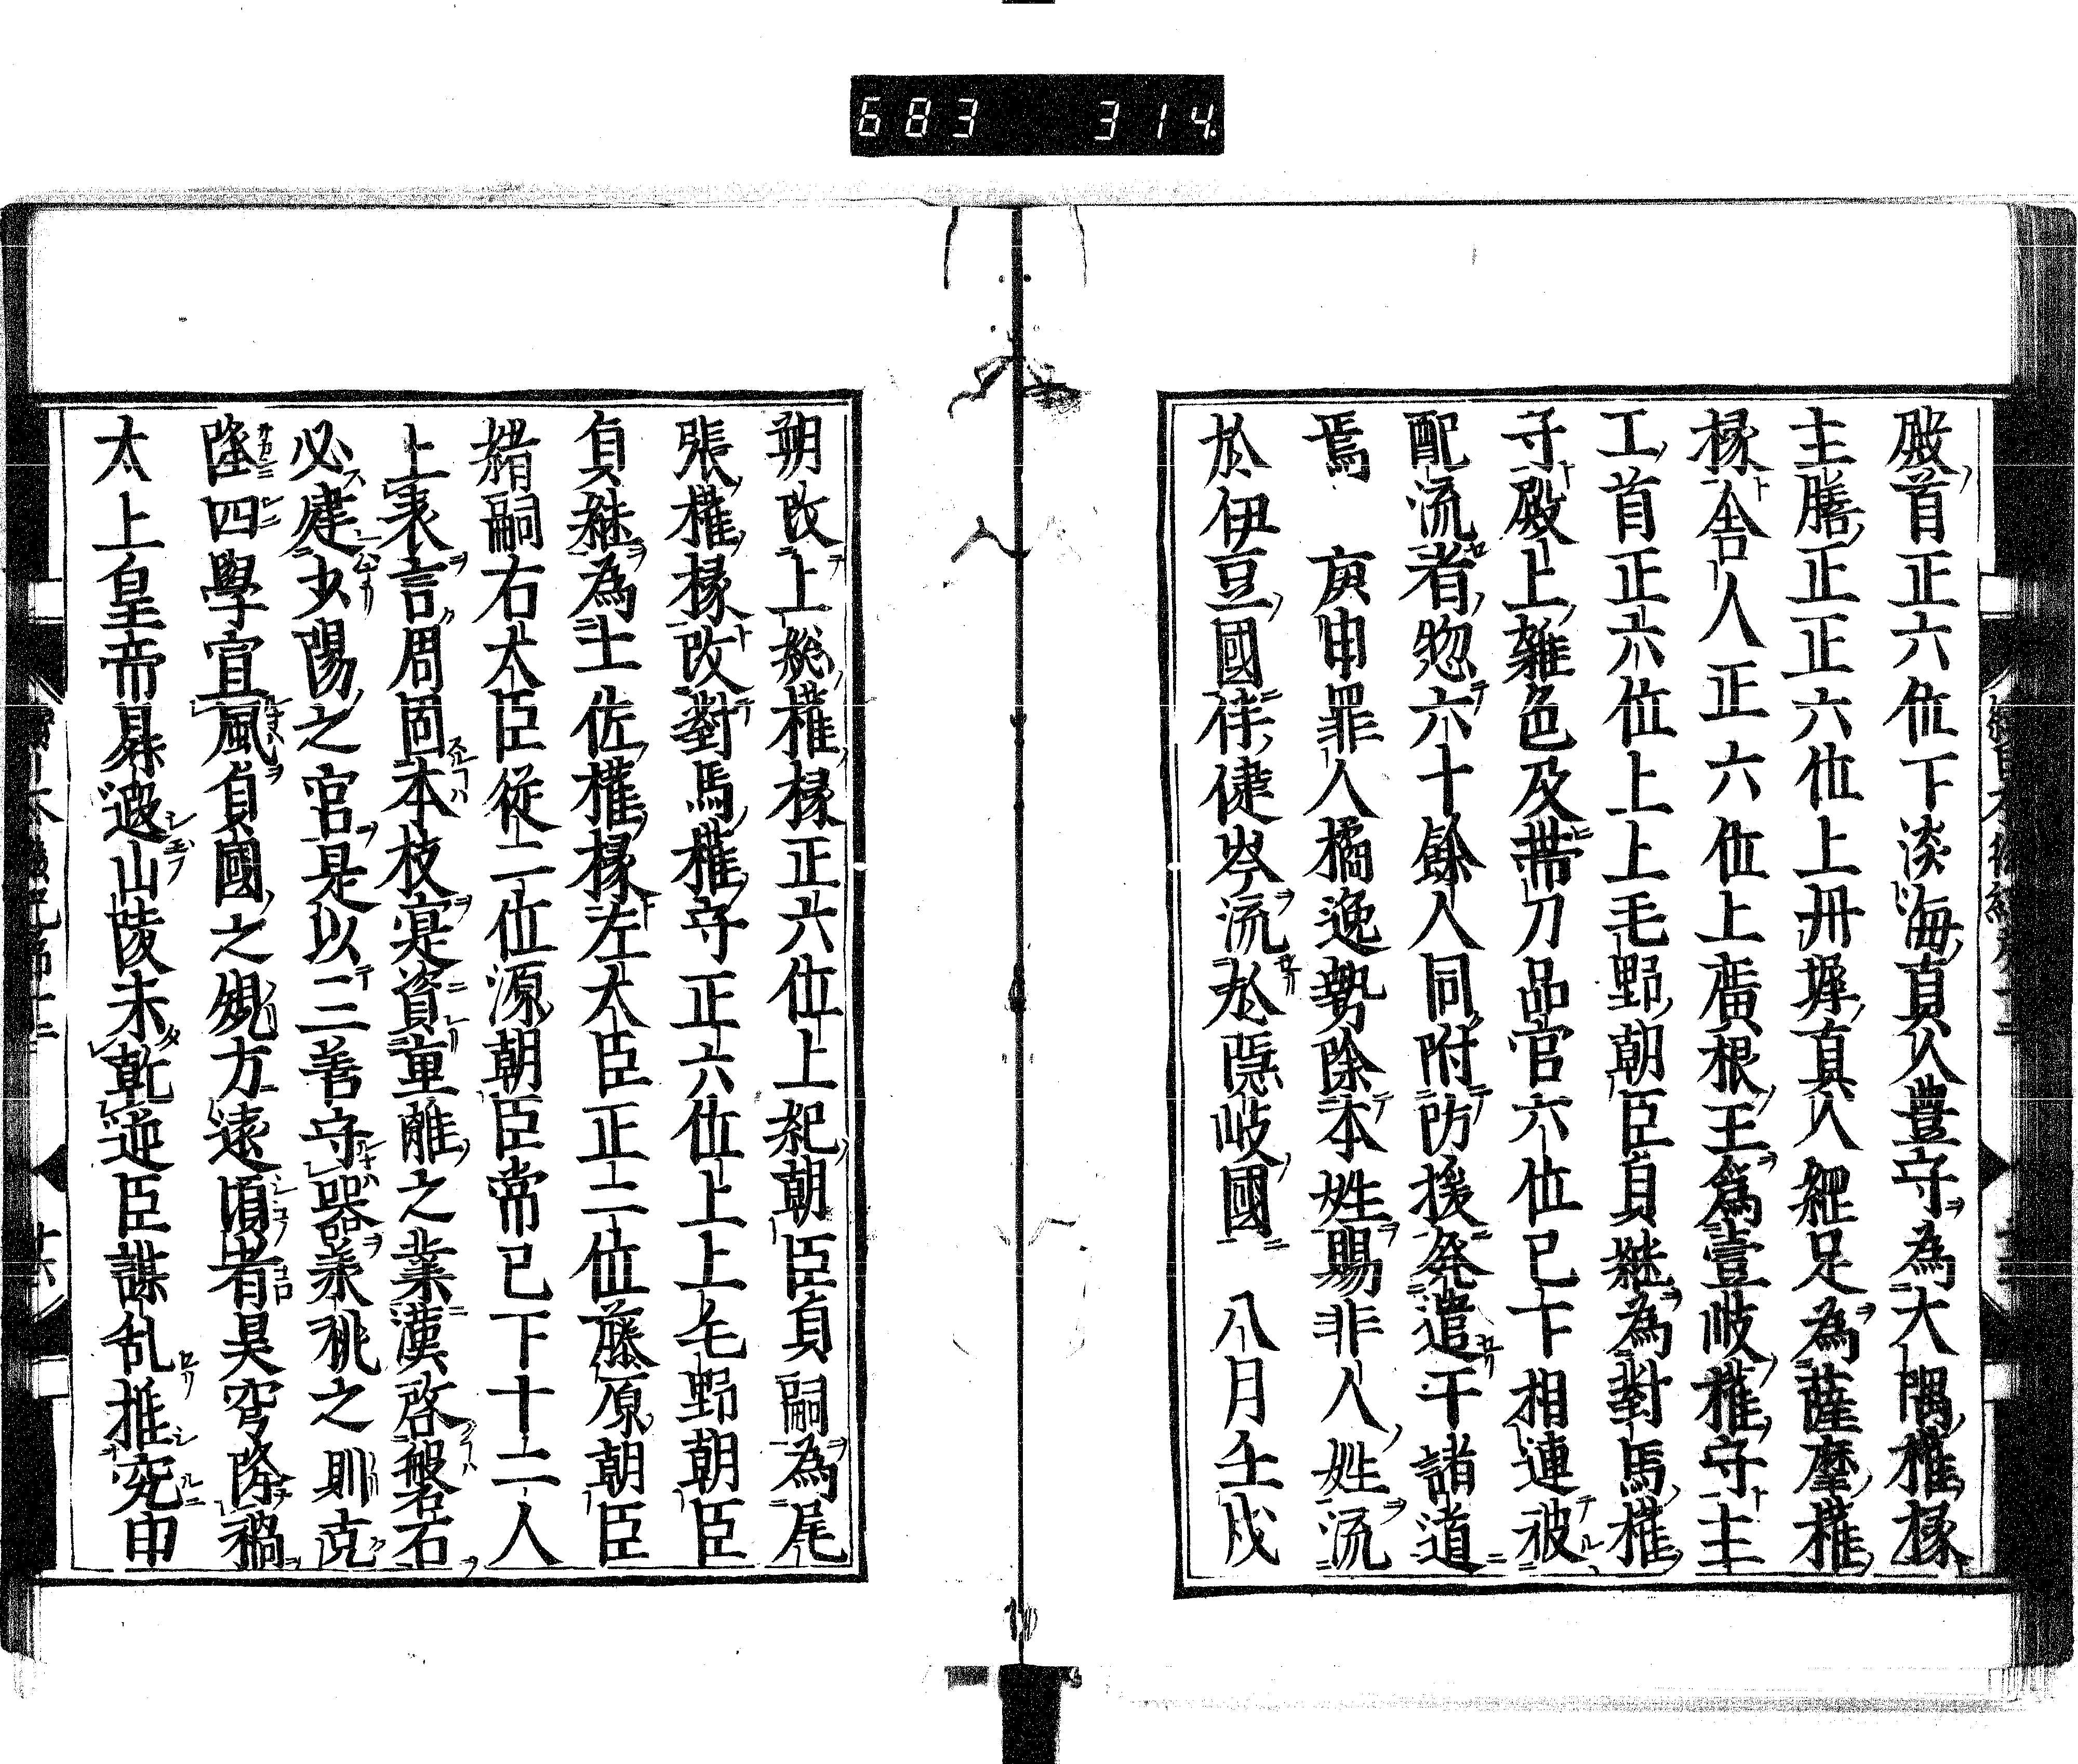 683 314
殿首正六位下淡海真人豊守為大隅権掾
主膳正正六位上丹墀真人縄足為薩摩権
掾舎人正六位上廣根王為壹岐権守主
工首正六位上上毛野朝臣貞継為對馬権
守殿上雜色及帯刀品官六位已下相連被
配流者惣六十餘人同附防援発遣于諸道
焉 庚申罪人橘逸勢除本姓賜非人姓流
於伊豆國伴健岑流於隠岐國 八月壬戌
朔改上総権掾正六位上紀朝臣貞嗣為尾
張権掾改對馬権守正六位上上毛野朝臣
貞継為土佐権掾左大臣正二位藤原朝臣
緒嗣右大臣従二位源朝臣常已下十二人
上表言周固本枝寔資重離之業漢啓盤石
必建少陽之官是以三善守器承祧之則克
隆四學宣風貞國之規方遠頃者昊穹降禍
太上皇帝昇遐山陵未乾逆臣謀乱推究申